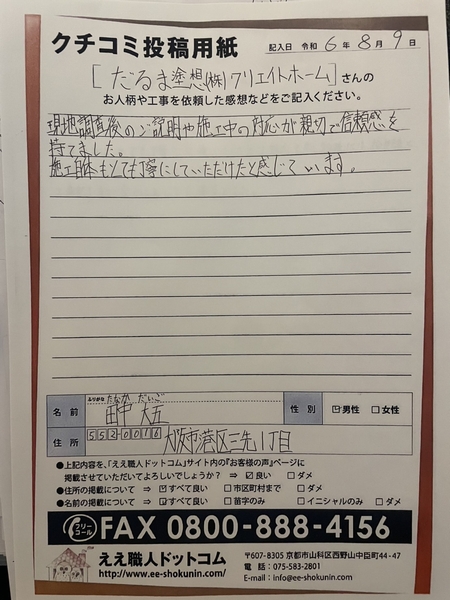 クチコミ投稿用紙
記入日 令和 6 年 8 月 9 日
[だるま塗想㈱クリエイトホーム]さんの
お人柄や工事を依頼した感想などをご記入ください。
現地調査後のご説明や施工中の対応が親切で信頼感を
持てました。
施工自体もとても丁寧にしていただけたと感じています。
ふりがな たなか だいご
名前 田中 大五 性別 ☑男性 □女性
住所 552-0016 大阪市港区三先1丁目
●上記内容を、「ええ職人ドットコム」サイト内の『お客様の声』ページに
掲載させていただいてよろしいでしょうか? ⇒ ☑良い □ダメ
●住所の掲載について ⇒ ☑すべて良い □市区町村まで □ダメ
●名前の掲載について ⇒ ☑すべて良い □苗字のみ □イニシャルのみ □ダメ
フリーコール FAX 0800-888-4156
ええ職人ドットコム
http://www.ee-shokunin.com/
〒607-8305 京都市山科区西野山中臣町44-47
電話:075-583-2801
E-mail:info@ee-shokunin.com